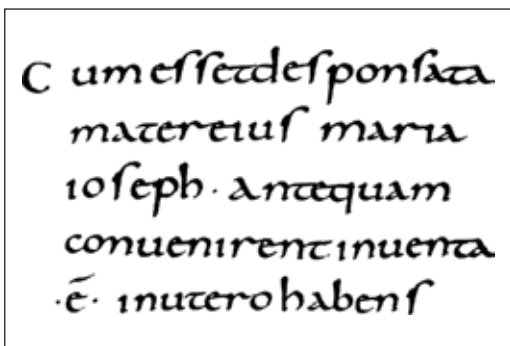 C um essetdesponsata
matereius maria
ioseph · antequam
conuenirent inuenta
·ē· inuterohabens